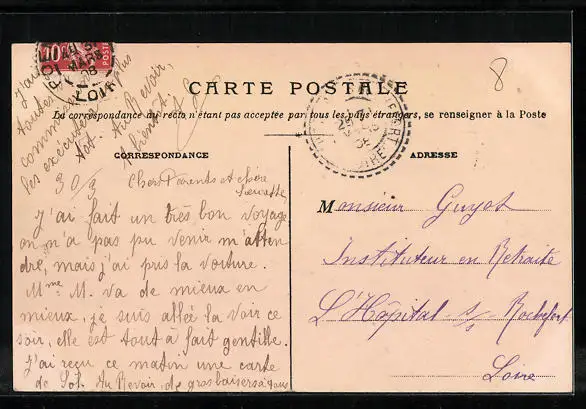 CARTE POSTALE
La correspondance au recto n'étant pas acceptée par tous les pays étrangers, se renseigner à la Poste
CORRESPONDANCE
ADRESSE
8
10
POSTES
LOIRE
J'ai
toutes
comm
les
plus
Au Revoir,
A bientôt.
30/3
Chers Parents et chère
J'ai fait un très bon voyage
on n'a pas pu venir m'atten
dre, mais j'ai pris la voiture.
Mme M. va de mieux en
mieux, je suis allée la voir ce
soir, elle est tout à fait gentille.
J'ai reçu ce matin une carte
de Au Revoir, de gros baisers à tous
Monsieur Guyot
Instituteur en Retraite
L'Hôpital-s/s-Rochefort
Loire